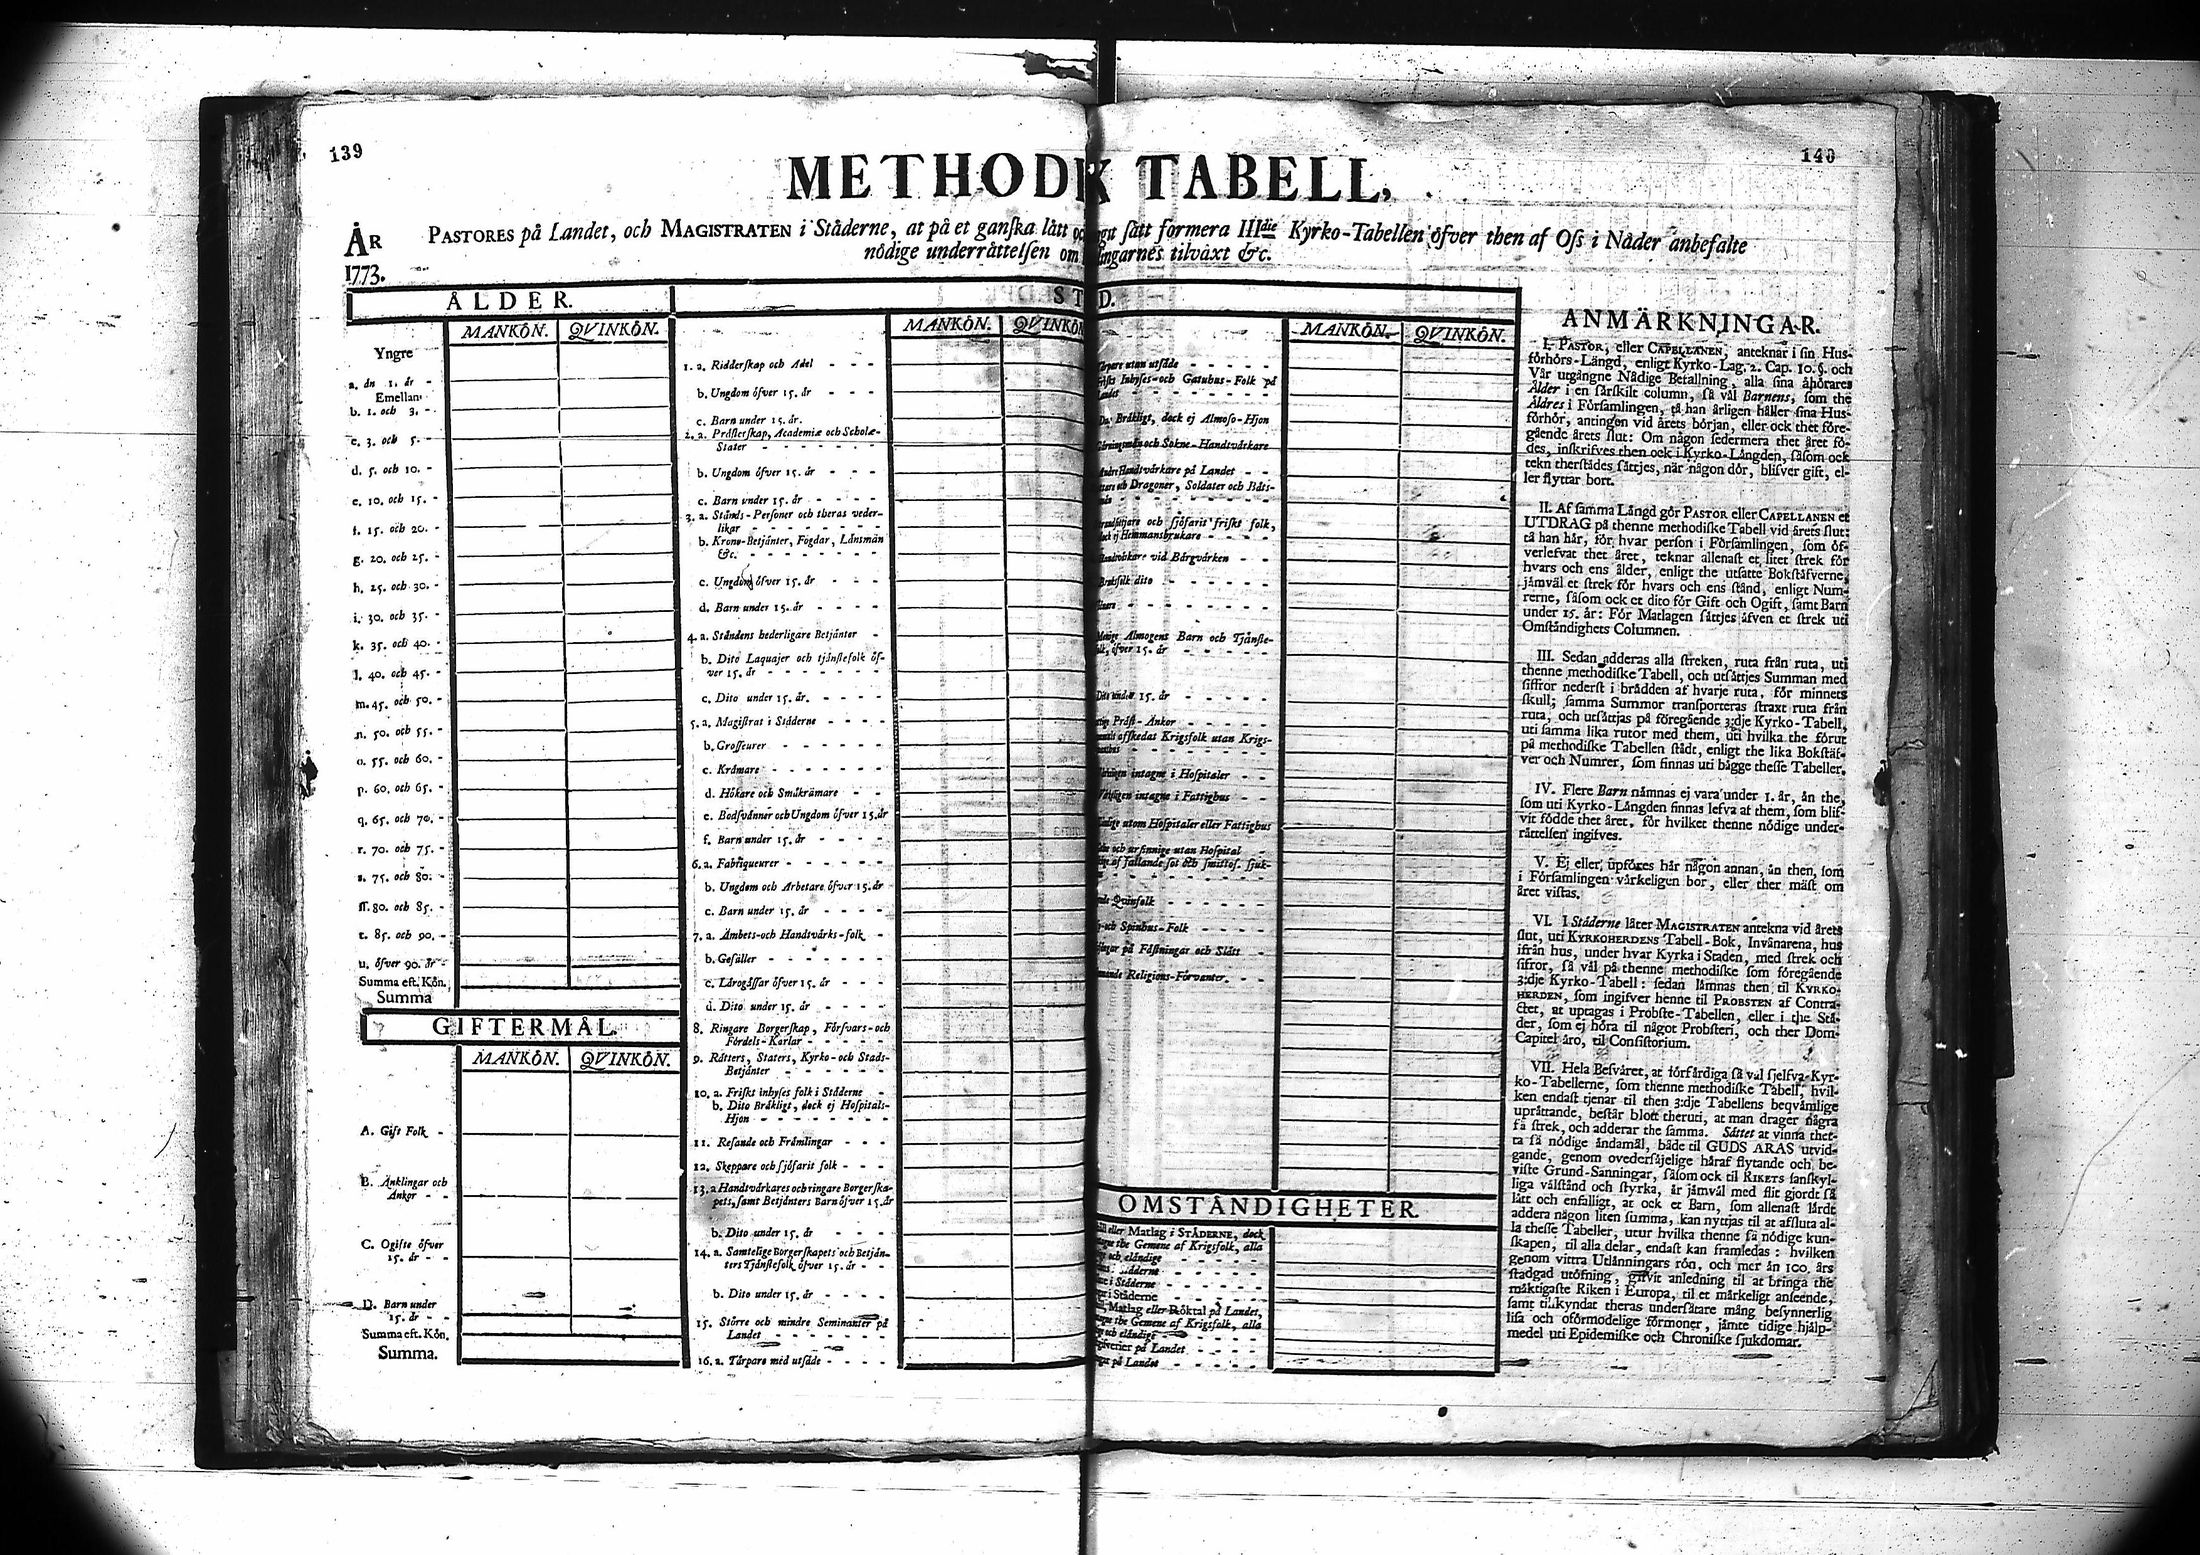 139
140
METHODK TABELL,
ÅR
1773.
PASTORES på Landet, och MAGISTRATEN i Ståderne, at på et ganſka lått ſått formera IIIdie Kyrko-Tabellen ôfver then af Oſs i Nåder anbefalte
nôdige underråttelſen om tilvåxt &c.
ÅLDER.
MANKÔN. QVINKÔN.
Yngre
a. ån 1. år -
Emellan
b. 1. och 3. -
c. 3. och 5. -
d. 5. och 10. -
e. 10. och 15. -
f. 15. och 20. -
g. 20. och 25. -
h. 25. och 30. -
i. 30. och 35. -
k. 35. och 40. -
l. 40. och 45. -
m. 45. och 50. -
n. 50. och 55. -
o. 55. och 60. -
p. 60. och 65. -
q. 65. och 70. -
r. 70. och 75. -
s. 75. och 80. -
ſſ. 80. och 85. -
t. 85. och 90. -
u. ôfver 90. år -
Summa eft. Kôn.
Summa
GIFTERMÅL.
MANKÔN. QVINKÔN.
A. Gift Folk -
B. Ånklingar och
Ånkor - -
C. Ogifte ôfver
15. år - -
D. Barn under
15. år - -
Summa eft. Kôn.
Summa.
MANKÔN. QVINKÔN
1. a. Ridderſkap och Adel - - -
b. Ungdom ôfver 15. år - - -
c. Barn under 15. år.
2. a. Pråſterſkap, Academiæ och Scholæ-
Stater - - - - - -
b. Ungdom ôfver 15. år - - -
c. Barn under 15. år - - - -
3. a. Stånds-Perſoner och theras veder-
likar - - - - - - - -
b. Krono-Betjånter, Fogdar, Lånsmån
&c. - - - - - - - -
c. Ungdom ôfver 15. år - - -
d. Barn under 15. år - - - -
4. a. Ståndens hederligare Betjånter -
b. Dito Laquajer och tjånſtefolk ôf-
ver 15. år - - - - - - -
c. Dito under 15. år. - - - -
5. a. Magiſtrat i Ståderne - - - -
b. Groſſeurer - - - - - - -
c. Kråmare - - - - - - -
d. Hôkare och Småkråmare - - -
e. Bodſvånner och Ungdom ôfver 15. år
f. Barn under 15. år - - - -
6. a. Fabriqueurer - - - - - -
b. Ungdom och Arbetare ôfver 15. år
c. Barn under 15. år - - - -
7. a. Åmbets-och Handtvårks-folk -
b. Geſåller - - - - - - - -
c. Lårogåſſar ôfver 15. år - - -
d. Dito under 15. år - - - -
8. Ringare Borgerſkap, Fôrſvars-och
Fôrdels-Karlar - - - - -
9. Råtters, Staters, Kyrko-och Stads-
Betjånter - - - - - - -
10. a. Friſkt inhyſes folk i Ståderne -
b. Dito Bråkligt, dock ej Hoſpitals-
Hjon - - - - - - - -
11. Reſande och Fråmlingar - - -
12. Skeppare och ſjôfarit folk - - -
13. a Handtvårkares och ringare Borgerſka-
pets, ſamt Betjånters Barn ôfver 15. år
b. Dito under 15. år - - - -
14. a. Samtelige Borgerſkapets och Betjån-
ters Tjånſtefolk ôfver 15. år - -
b. Dito under 15. år - - - -
15. Stôrre och mindre Seminanter på
Landet - - - - - - -
16. a. Tårpare med utſåde - - - -
MANKÔN. QVINKÔN.
utan utſåde - - - - -
Inhyſes-och Gatuhus-Folk på
Bråkligt, dock ej Almoſo-Hjon
och Sokne-Handtvårkare
Handtvårkare på Landet - -
Dragoner, Soldater och Båts-
och ſjôfarit friſkt folk,
ej Hemmansbrukare - - - -
vid Bårgvårken - -
dito - - - - - -
Almogens Barn och Tjånſte-
ôfver 15. år - - - - -
under 15. år - - - - -
Pråſt-Ånkor - - - - -
afſkedat Krigsfolk utan Krigs-
intagne i Hoſpitaler - -
intagne i Fattighus - -
utom Hoſpitaler eller Fattighus
utan Hoſpital -
af fallande ſot och ſmittoſ. ſjuk-
Qvinfolk - - - - - -
och Spinhus-Folk - - - -
på Fåſtningar och Slått - -
Religions-Fôrvanter. - -
OMSTÅNDIGHETER.
eller Matlag i STÅDERNE, dock
the Gemene af Krigsfolk, alla
och elåndige - - - - -
i Ståderne - - - - -
i Ståderne - - - - -
Matlag eller Rôktal på Landet,
the Gemene af Krigsfolk, alla
och elåndige - - - -
på Landet - - - -
på Landet - - - -
ANMÄRKNINGAR.
I. PASTOR, eller CAPELLANEN, anteknar i ſin Hus-
fôrhôrs-Långd, enligt Kyrko-Lag. 2. Cap. 10. §. och
Vår utgångne Nådige Befallning, alla ſina åhôrares
Ålder i en ſårſkilt column, ſå vål Barnens, ſom the
Åldres i Fôrſamlingen, tå han årligen håller ſina Hus-
fôrhôr, antingen vid årets bôrjan, eller ock thet fôre-
gående årets ſlut: Om någon ſedermera thet året fô-
des, inſkrifves then ock i Kyrko-Långden, ſåſom ock
tekn therſtådes ſåttjes, når någon dôr, blifver gift, el-
ler flyttar bort.
II. Af ſamma Långd gôr PASTOR eller CAPELLANEN et
UTDRAG på thenne methodiſke Tabell vid årets ſlut:
tå han hår, fôr hvar perſon i Fôrſamlingen, ſom ôf-
verlefvat thet året, teknar allenaſt et litet ſtrek fôr
hvars och ens ålder, enligt the utſatte Bokſtåfverne,
jåmvål et ſtrek fôr hvars och ens ſtånd, enligt Num-
rerne, ſåſom ock et dito fôr Gift och Ogift, ſamt Barn
under 15. år: Fôr Matlagen ſåttjes åfven et ſtrek uti
Omſtåndighets Columnen.
III. Sedan adderas alla ſtreken, ruta från ruta, uti
thenne methodiſke Tabell, och utſåttjes Summan med
ſiffror nederſt i brådden af hvarje ruta, fôr minnets
ſkull; ſamma Summor transporteras ſtraxt ruta från
ruta, och utſåttjas på fôregående 3:dje Kyrko-Tabell,
uti ſamma lika rutor med them, uti hvilka the fôrut
på methodiſke Tabellen ſtådt, enligt the lika Bokſtåf-
ver och Numrer, ſom finnas uti bågge theſſe Tabeller.
IV. Flere Barn nåmnas ej vara under 1. år, ån the,
ſom uti Kyrko-Långden finnas lefva af them, ſom blif-
vit fôdde thet året, fôr hvilket thenne nôdige under-
råttelſen ingifves.
V. Ej eller upfôres hår någon annan, ån then, ſom
i Fôrſamlingen vårkeligen bor, eller ther måſt om
året viſtas.
VI. I Ståderne låter MAGISTRATEN antekna vid årets
ſlut, uti KYRKOHERDENS Tabell-Bok, Invånarena, hus
ifrån hus, under hvar Kyrka i Staden, med ſtrek och
ſifror, ſå vål på thenne methodiſke ſom fôregående
3:dje Kyrko-Tabell: ſedan låmnas then til KYRKO-
HERDEN, ſom ingifver henne til PROBSTEN af Contra-
ctet, at uptagas i Probſte-Tabellen, eller i the Stå-
der, ſom ej hôra til något Probſteri, och ther Dom-
Capitel åro, til Conſiſtorium.
VII. Hela Beſvåret, at fôrfårdiga ſå vål ſjelfva Kyr-
ko-Tabellerne, ſom thenne methodiſke Tabell, hvil-
ken endaſt tjenar til then 3:dje Tabellens beqvåmlige
upråttande, beſtår blott theruti, at man drager några
få ſtrek, och adderar the ſamma. Såttet at vinna thet-
ta ſå nôdige åndamål, både til GUDS ÅRAS utvid-
gande, genom ovederſåjelige håraf flytande och be-
viſte Grund-Sanningar, ſåſom ock til RIKETS ſanſkyl-
liga vålſtånd och ſtyrka, år jåmvål med flit gjordt ſå
lått och enfalligt, at ock et Barn, ſom allenaſt lårdt
addera någon liten ſumma, kan nyttjas til at afſluta al-
la theſſe Tabeller, utur hvilka thenne ſå nôdige kun-
ſkapen, til alla delar, endaſt kan framledas: hvilken
genom vittra Utlånningars rôn, och mer ån 100. års
ſtadgad utôfning, gifvit anledning til at bringa the
måktigaſte Riken i Europa, til et mårkeligt anſeende,
ſamt tilſkyndat theras underſåtare mång beſynnerlig
liſa och ofôrmodelige fôrmoner, jåmte tidige hjålp-
medel uti Epidemiſke och Chroniſke ſjukdomar.